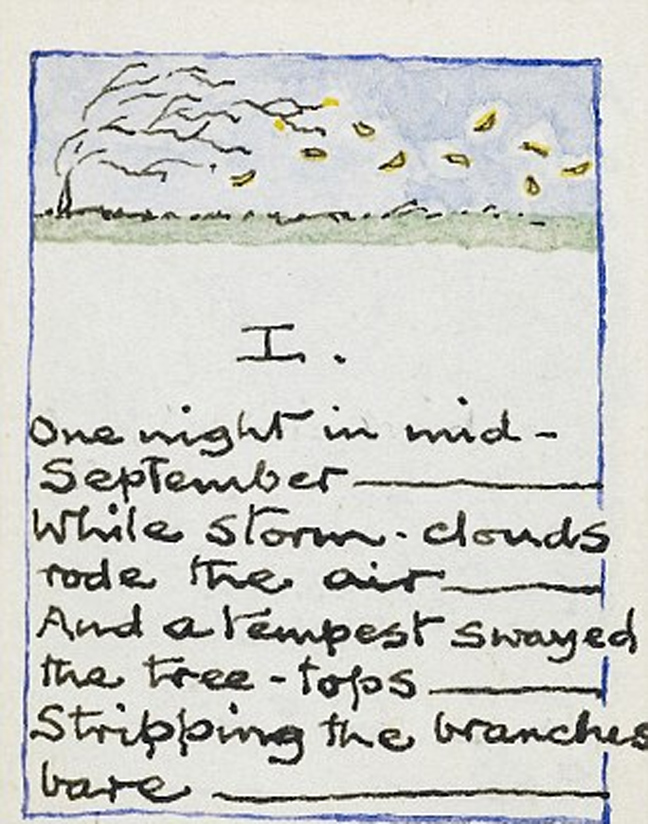 I.
One night in mid-
September
While storm-clouds
rode the air
And a tempest swayed
the tree-tops
Stripping the branches
bare